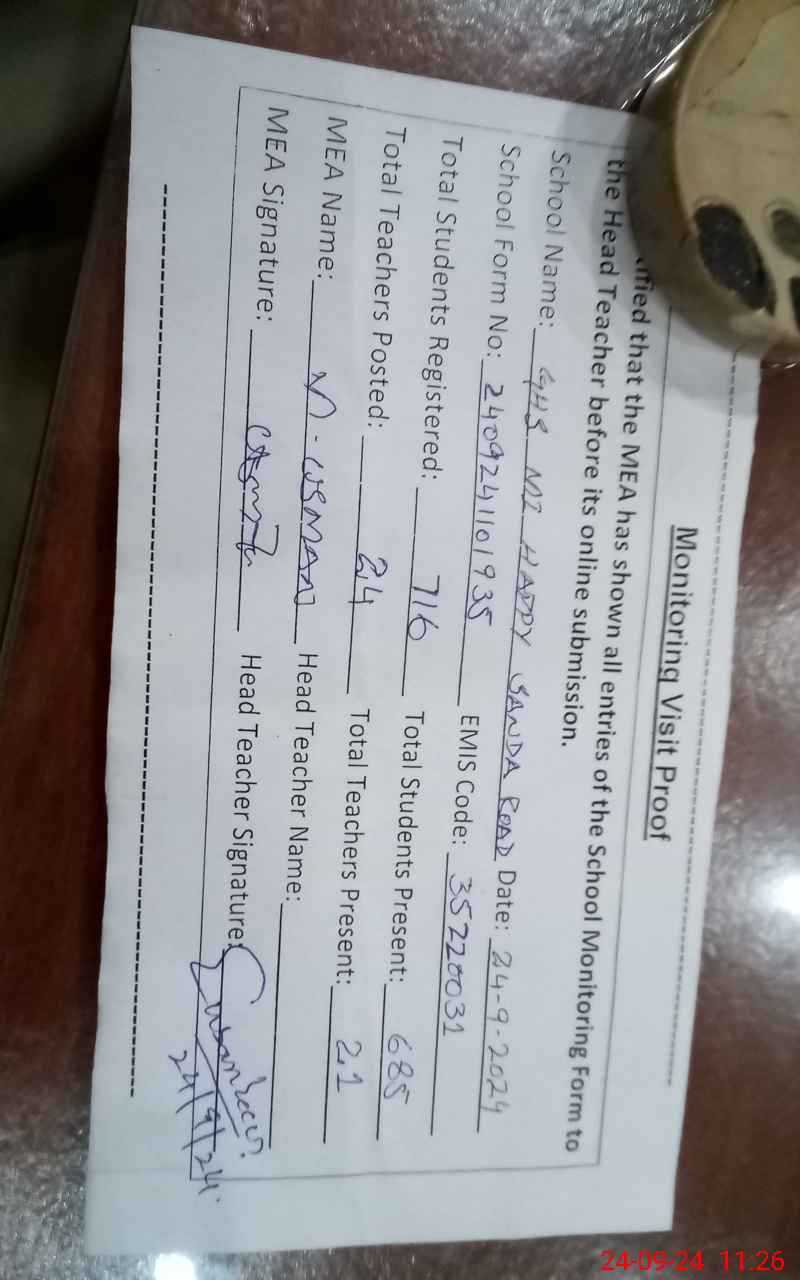 Monitoring Visit Proof
ified that the MEA has shown all entries of the School Monitoring Form to
the Head Teacher before its online submission.
School Name: GHS MI HAPPY SANDA ROAD Date: 24-9-2024
School Form No: 2409241101935 EMIS Code: 35220031
Total Students Registered: 716 Total Students Present: 685
Total Teachers Posted: 24 Total Teachers Present: 21
MEA Name: M. USMAN Head Teacher Name:
MEA Signature: Head Teacher Signature:
24/9/24
24-09-24 11:26